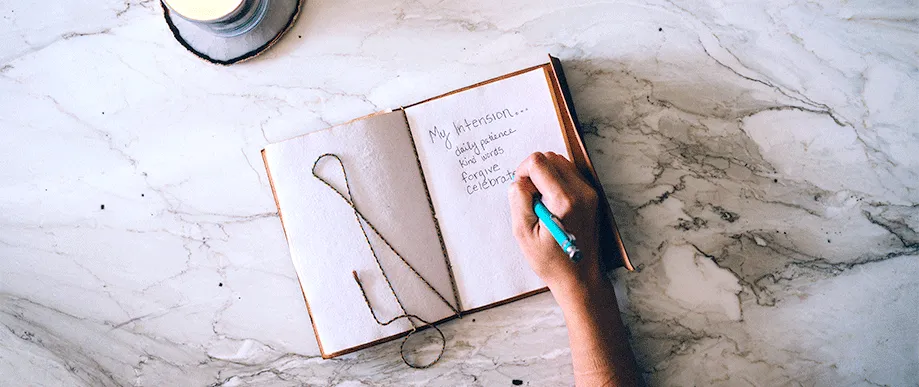 My Intension...
daily patience
kind words
forgive
celebrate